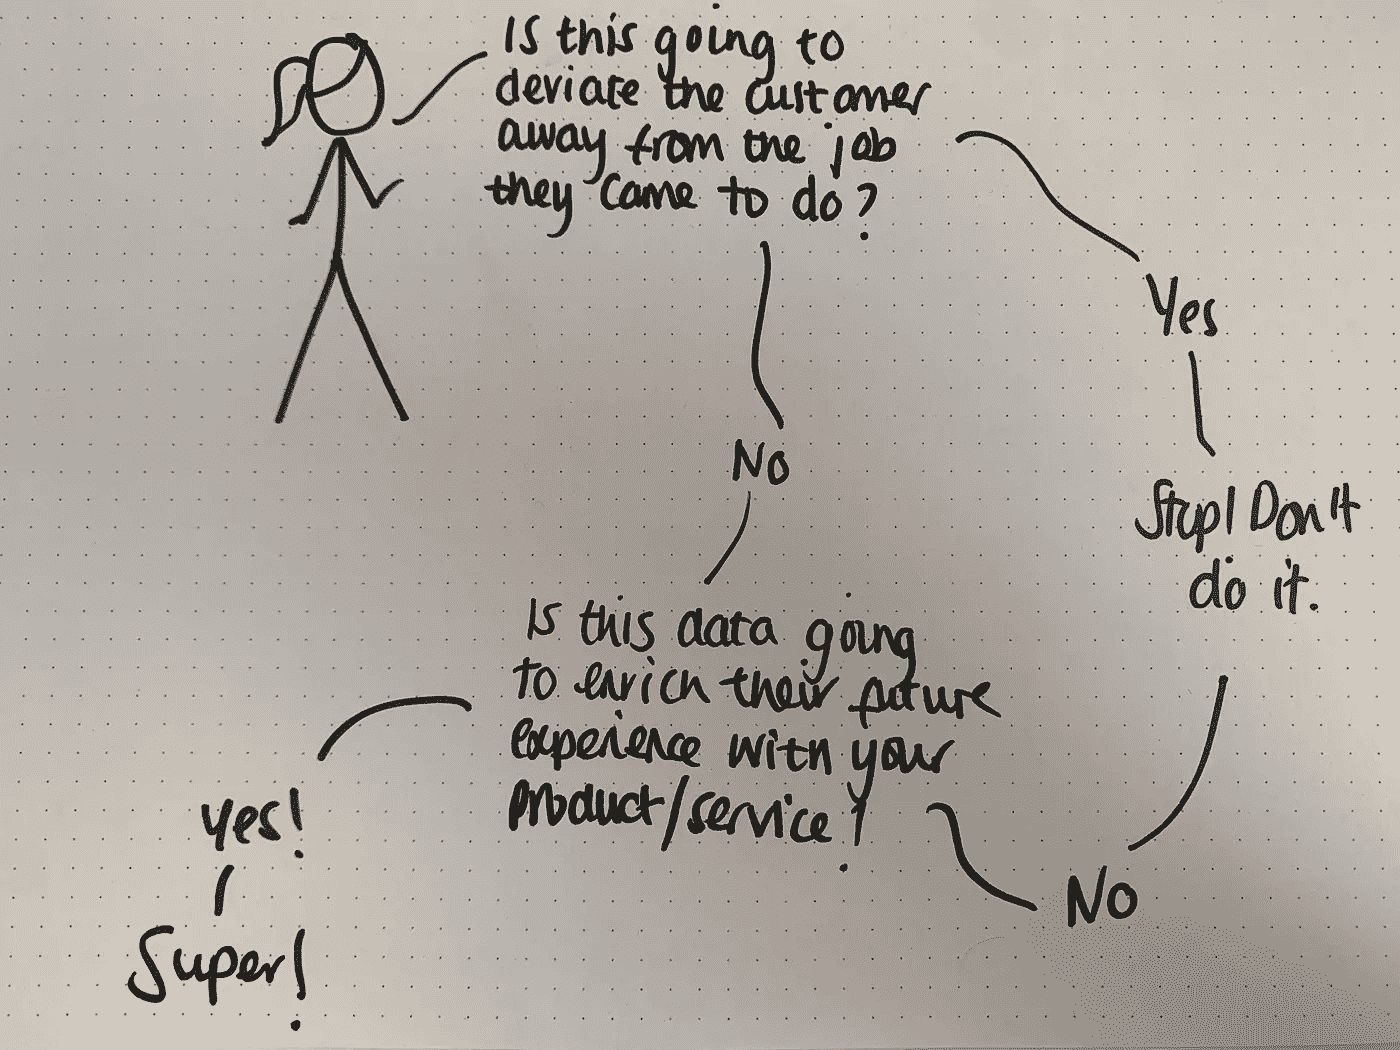 Is this going to
deviate the customer
away from the job
they came to do?
Yes
No
Stop! Don't
do it.
Is this data going
to enrich their future
experience with your
product/service?
Yes!
No
Super!